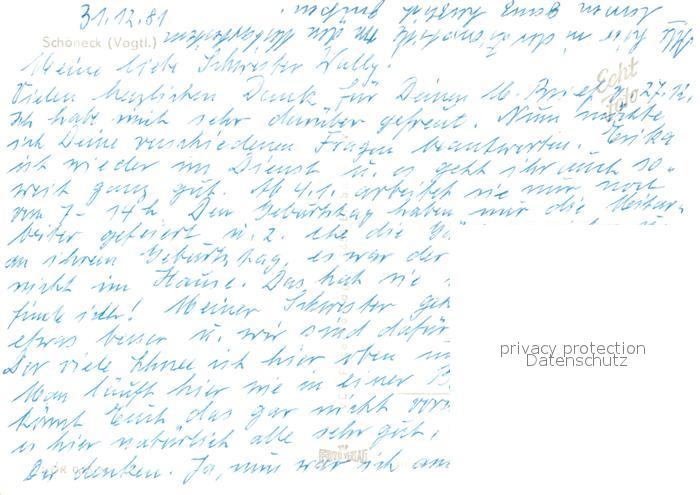 31.12.81
Schöneck (Vogtl.)
Meine liebe Schwester Wally!
Vielen herzlichen Dank für Deinen lb. Brief v. 27.12.
Ich habe mich sehr darüber gefreut. Nun möchte
ich Deine verschiedenen Fragen beantworten. Erika
ist wieder im Dienst u. es geht ihr auch so-
weit ganz gut. Ab 4.1. arbeitet sie nur noch
von 7-14h. Den Geburtstag haben nur die Mitar-
beiter gefeiert u. z. ehe die
an ihrem Geburtstag, es war der
nicht im Hause. Das hat sie
finde ich! Meiner Schwester geh
etwas besser u. wir sind dafür
Der viele Schnee ist hier oben
Man läuft hier wie in einer
könnt Euch das gar nicht vors
es hier natürlich alle sehr gut,
Dir denken. Ja, nun war ich am
Echt
Foto
privacy protection
Datenschutz